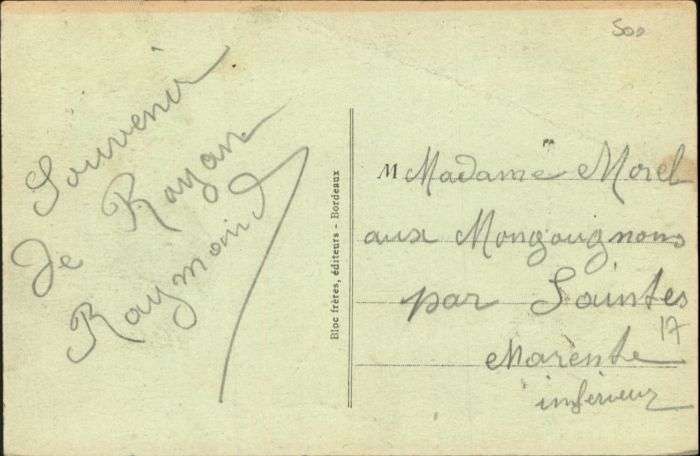 500
Souvenir
de Royan
Raymond
Bloc frères, éditeurs - Bordeaux
M Madame Morel
aux Mongougnons
par Saintes
17
Marente
inférieur